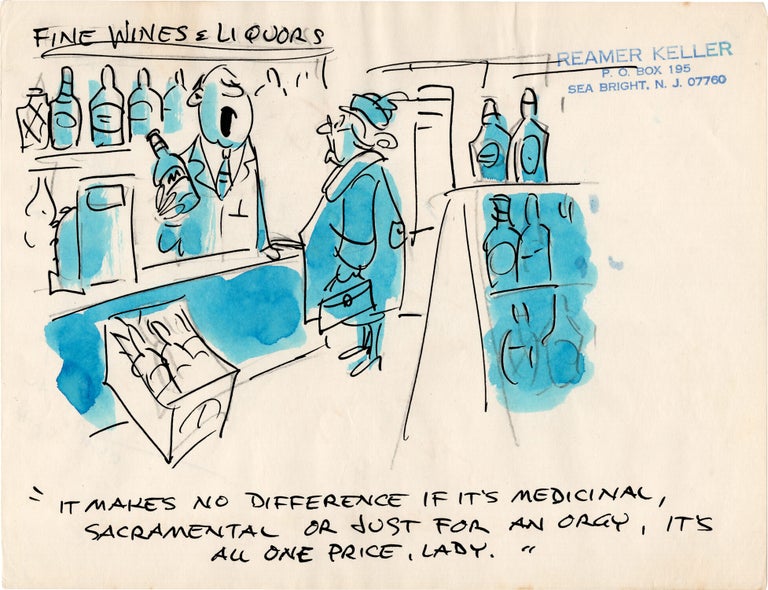 FINE WINES & LIQUORS
REAMER KELLER
P. O. BOX 195
SEA BRIGHT, N. J. 07760
" IT MAKES NO DIFFERENCE IF IT'S MEDICINAL,
SACRAMENTAL OR JUST FOR AN ORGY, IT'S
ALL ONE PRICE, LADY. "